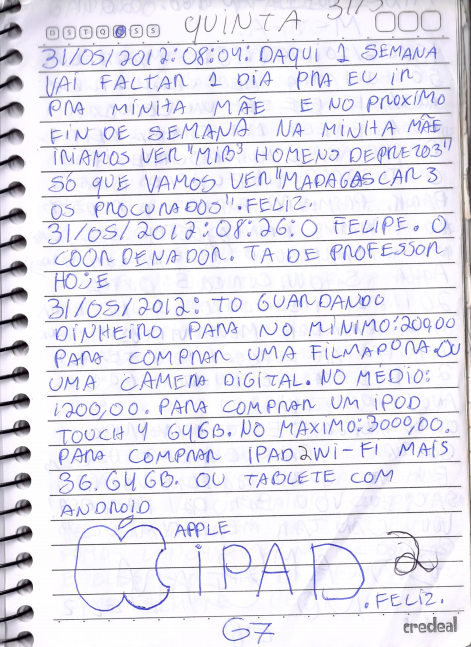 QUINTA 31/5
D S T Q Q S S
31/05/2012:08:04: DAQUI 1 SEMANA
VAI FALTAR 1 DIA PRA EU IR
PRA MINHA MÃE E NO PROXIMO
FIN DE SEMANA NA MINHA MÃE
IRIAMOS VER "MIB³ HOMENS DEPRETO3"
SÓ QUE VAMOS VER "MADAGASCAR 3
OS PROCURADOS". FELIZ.
31/05/2012:08:26: O FELIPE. O
COORDENADOR. TA DE PROFESSOR
HOJE
31/05/2012: TO GUARDANDO
DINHEIRO PARA NO MÍNIMO:200,00
PARA COMPRAR UMA FILMADORA. OU
UMA CAMERA DIGITAL. NO MÉDIO:
1200,00. PARA COMPRAR UM IPOD
TOUCH 4 64GB. NO MAXIMO:3000,00.
PARA COMPRAR IPAD2 WI-FI MAIS
3G. 64 GB. OU TABLETE COM
ANDROID
APPLE
IPAD 2
. FELIZ.
G7
credeal